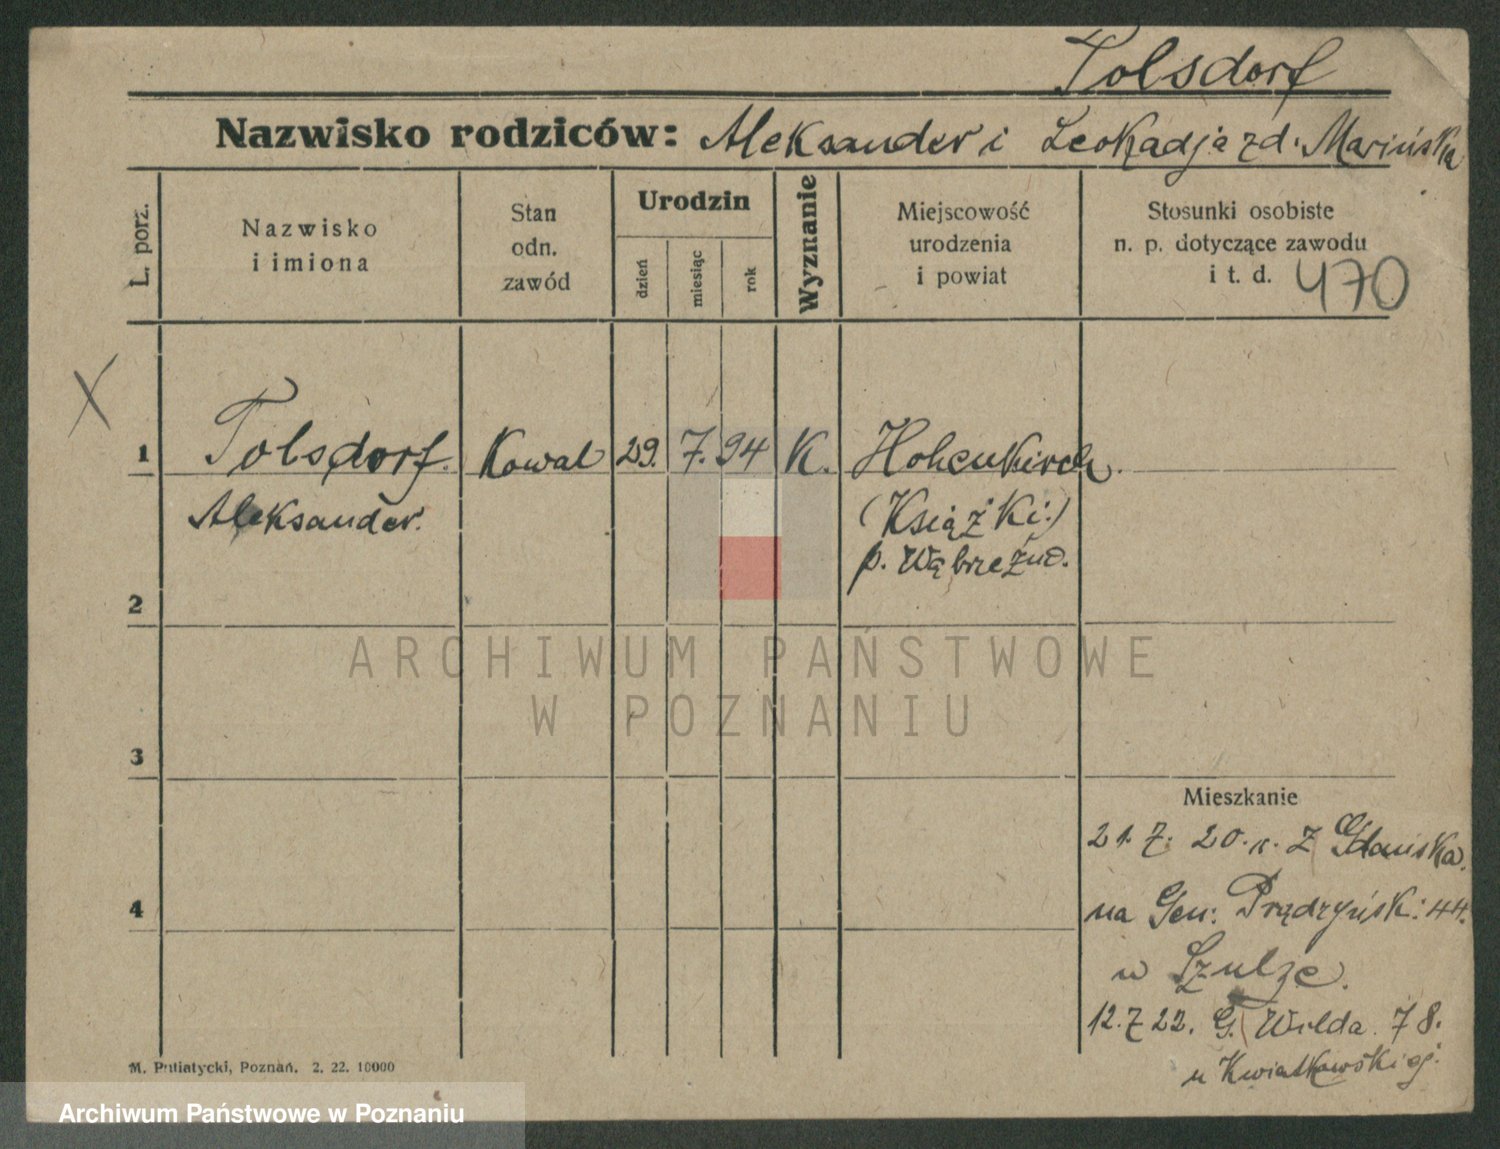 Tolsdorf
Nazwisko rodziców: Aleksander i Leokadja zd. Marińska
L. porz.
Nazwisko
i imiona
Stan
odn.
zawód
Urodzin
dzień
miesiąc
rok
Wyznanie
Miejscowość
urodzenia
i powiat
Stosunki osobiste
n. p. dotyczące zawodu
i t. d. 470
X
1 Tolsdorf. Kowal 29. 7. 94 K. Hohenkirch.
Aleksander. (Książki:)
p. Wąbrzeźno.
2
3
4
Mieszkanie
21. 7. 20. r. z Gdańska.
na Gen: Prądzyńsk: 44.
u Szulze.
12. 7 22. G. Wilda. 78.
u Kwiatkowskiej.
M. Putiatycki, Poznań. 2. 22. 10000
ARCHIWUM PAŃSTWOWE
W POZNANIU
Archiwum Państwowe w Poznaniu